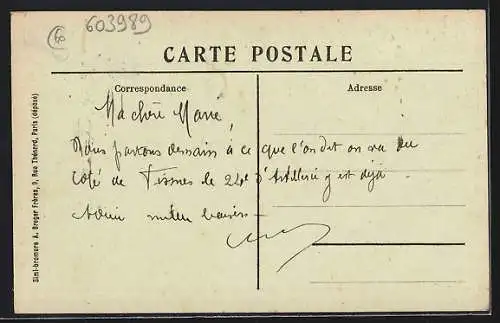 603989
CARTE POSTALE
Correspondance
Adresse
Ma chère Marie,
Nous partons demain à ce que l'on dit on va du
coté de Fismes le 24e d'Artillerie y est déjà
mille baisers
Simi-bromure A. Breger Frères, 9, Rue Thénard, Paris (déposé)